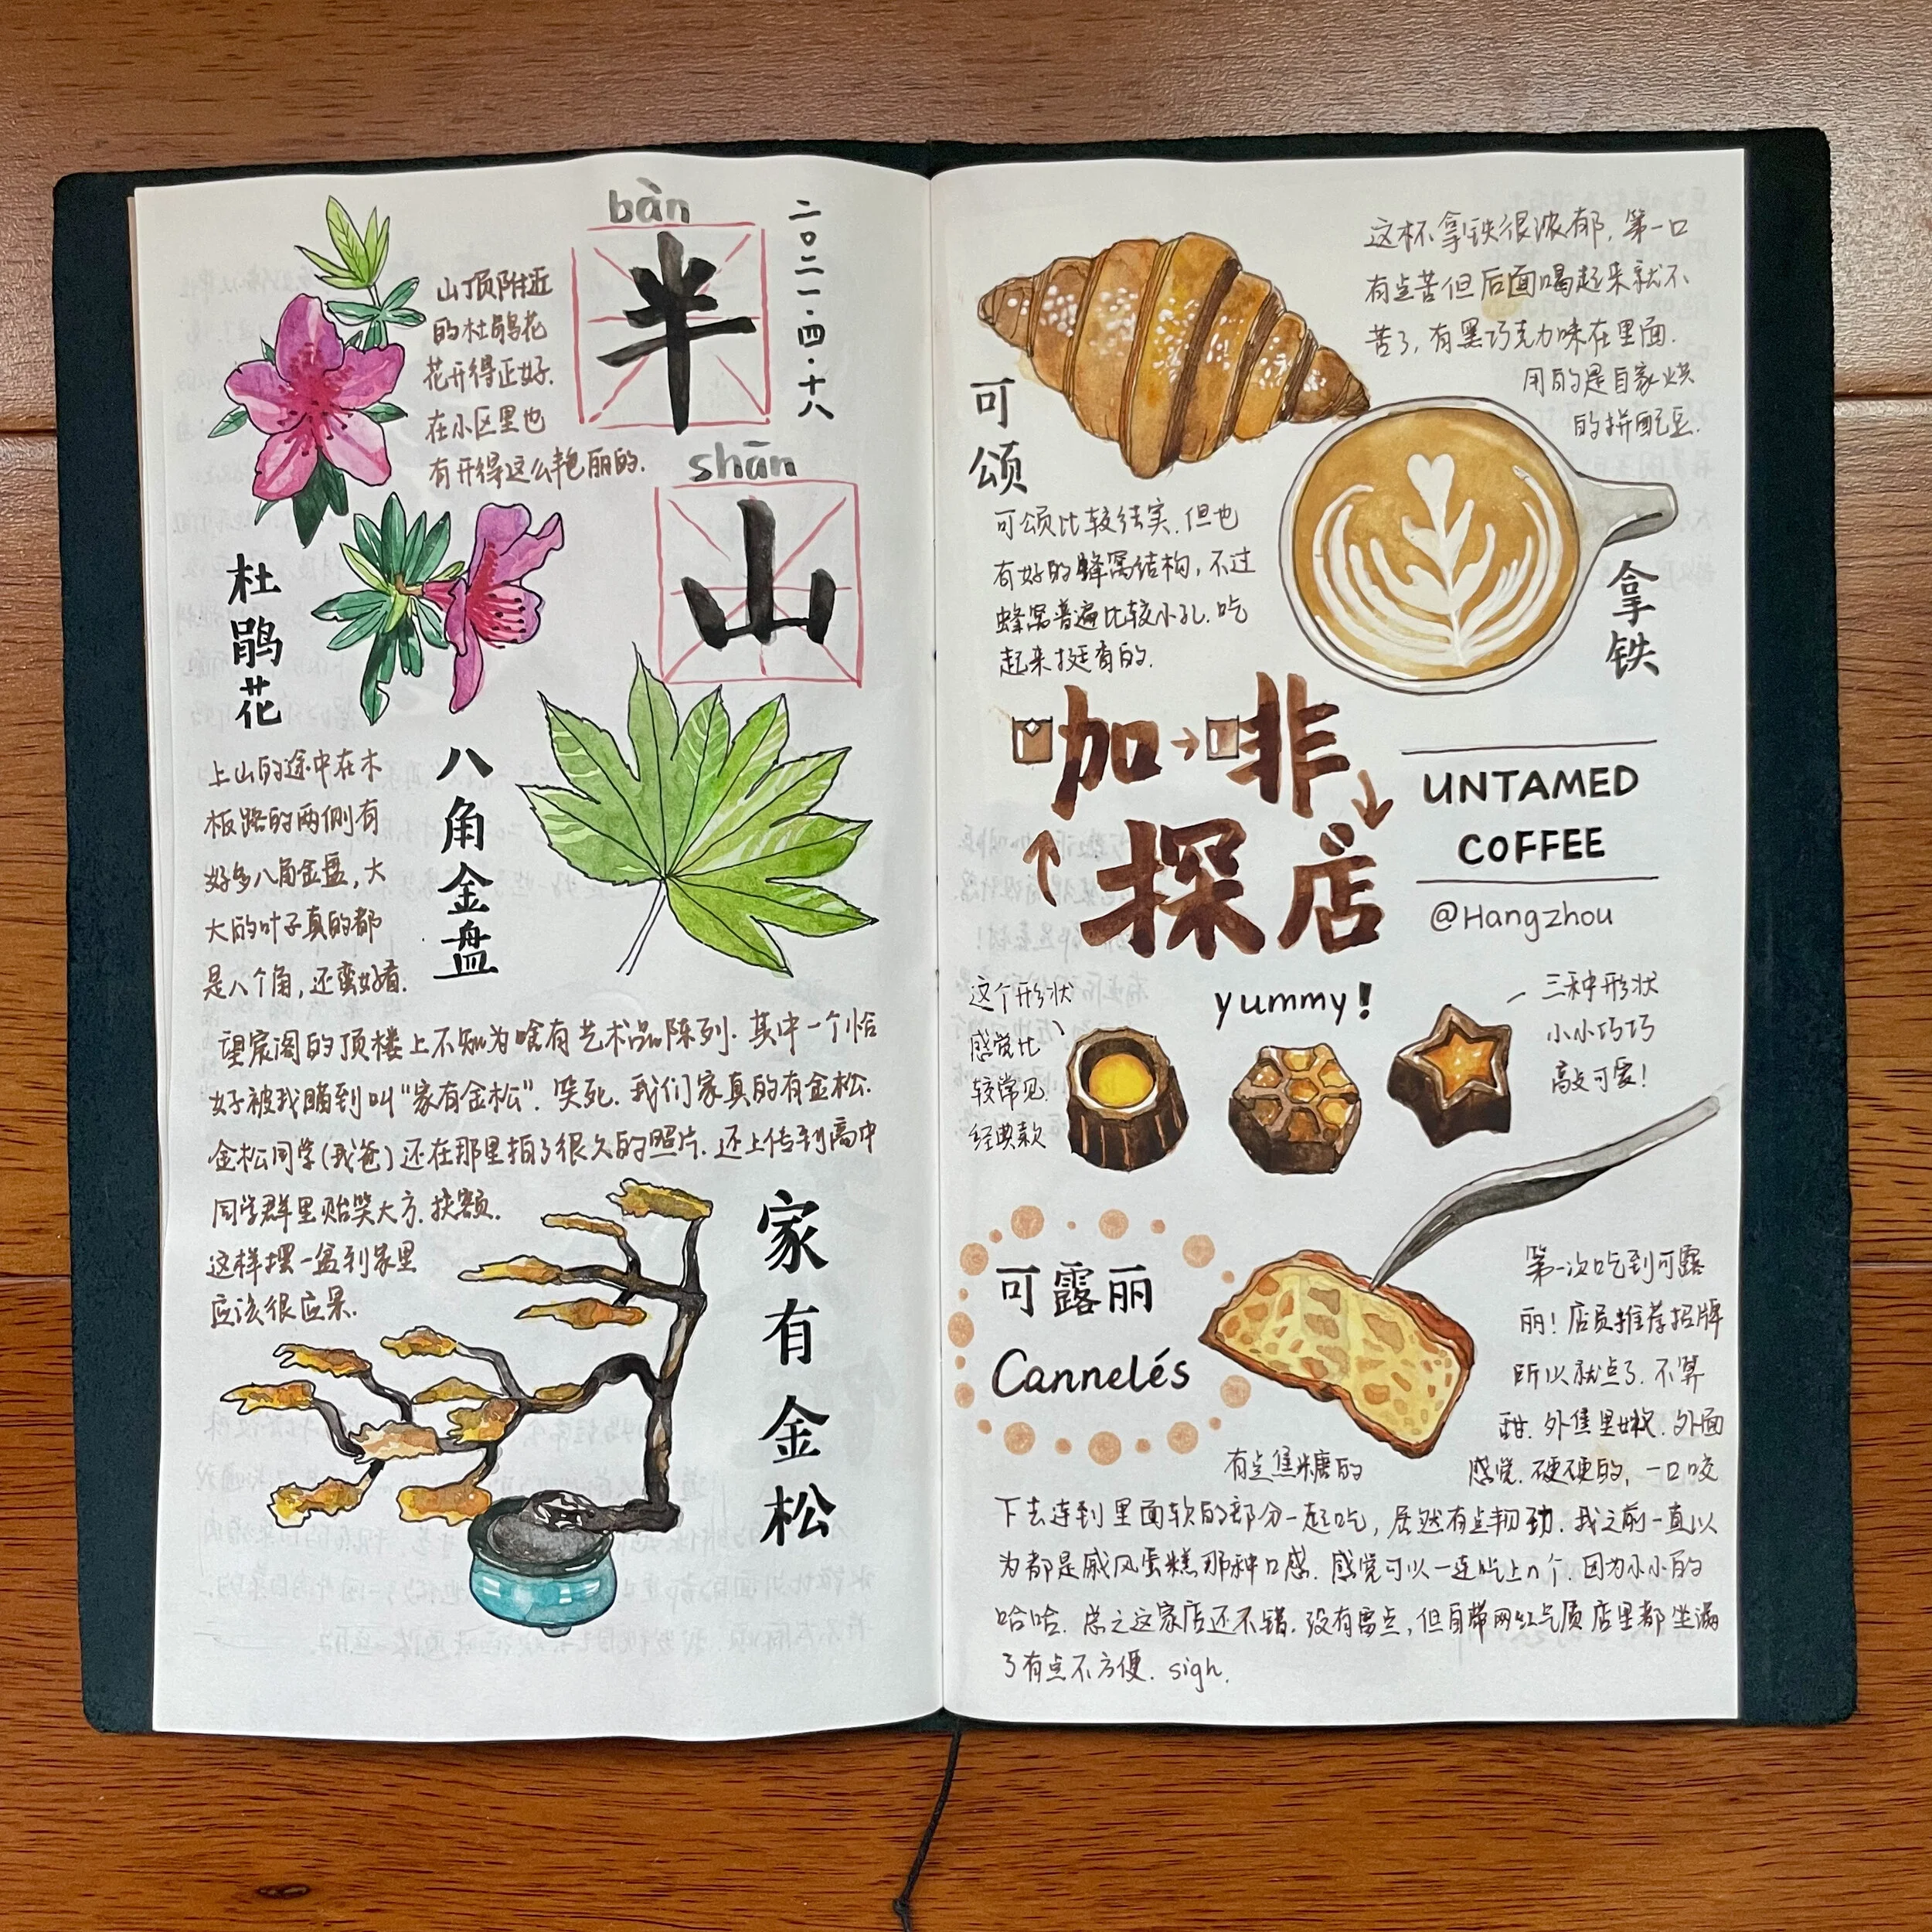 bàn
半
shān
山
二〇二一·四·十八
山顶附近
的杜鹃花
花开得正好.
在小区里也
有开得这么艳丽的.
杜鹃花
八角金盘
上山的途中在木
板路的两侧有
好多八角金盘,大
大的叶子真的都
是八个角,还蛮好看.
望宸阁的顶楼上不知为啥有艺术品陈列.其中一个恰
好被我瞄到叫“家有金松”.笑死.我们家真的有金松.
金松同学(我爸)还在那里拍了很久的照片.还上传到高中
同学群里贻笑大方.扶额.
这样摆一盆到家里
应该很应景.
家有金松
可颂
这杯拿铁很浓郁,第一口
有点苦但后面喝起来就不
苦了,有黑巧克力味在里面.
用的是自家烘
的拼配豆.
可颂比较结实.但也
有好的蜂窝结构,不过
蜂窝普遍比较小孔.吃
起来挺香的.
拿铁
加非
探店
UNTAMED
COFFEE
@Hangzhou
yummy!
这个形状
感觉比
较常见.
经典款
三种形状
小小巧巧
高度可爱!
可露丽
Cannelés
第一次吃到可露
丽!店员推荐招牌
所以就点了.不算
甜.外焦里嫩.外面
有点焦糖的
感觉.硬硬的,一口咬
下去连到里面软的部分一起吃,居然有点韧劲.我之前一直以
为都是戚风蛋糕那种口感.感觉可以一连吃上n个.因为小小的
哈哈.总之这家店还不错.没有雷点,但自带网红气质店里都坐满
了有点不方便.sigh.